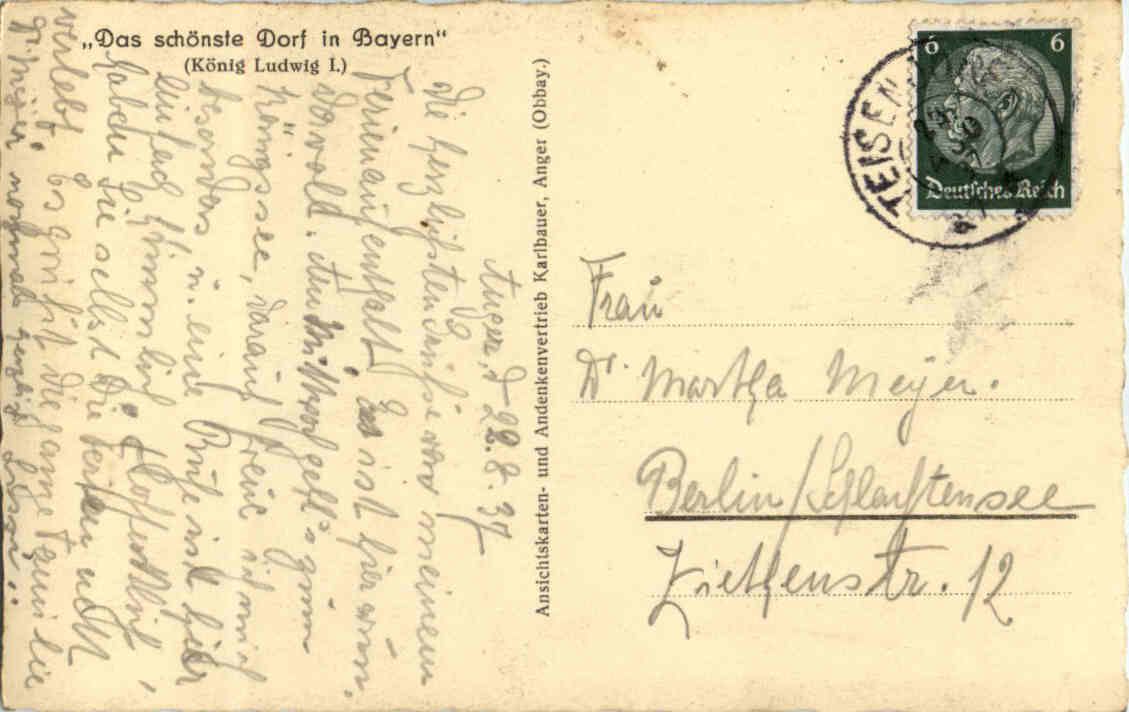 „Das schönste Dorf in Bayern“
(König Ludwig I.)
Anger, d 22.8.37
Die herzlichsten Grüsse von meinem
Ferienaufenthalt. Es ist hier wun-
dervoll. Am Mittwoch geht's zum
Königssee, darauf freue ich mich
besonders u. eine Ruhe ist hier
einfach himmlich. Hoffentlich
haben Sie selbst die Ferien nett
verlebt. Es grüßt die ganze Familie
nochmals herzlich
Ansichtskarten- und Andenkenvertrieb Karlbauer, Anger (Obbay.)
6 6
Deutsches Reich
TEISEN
Frau
Dr. Martha Meyer.
Berlin/Schlachtensee
Ziethenstr. 12